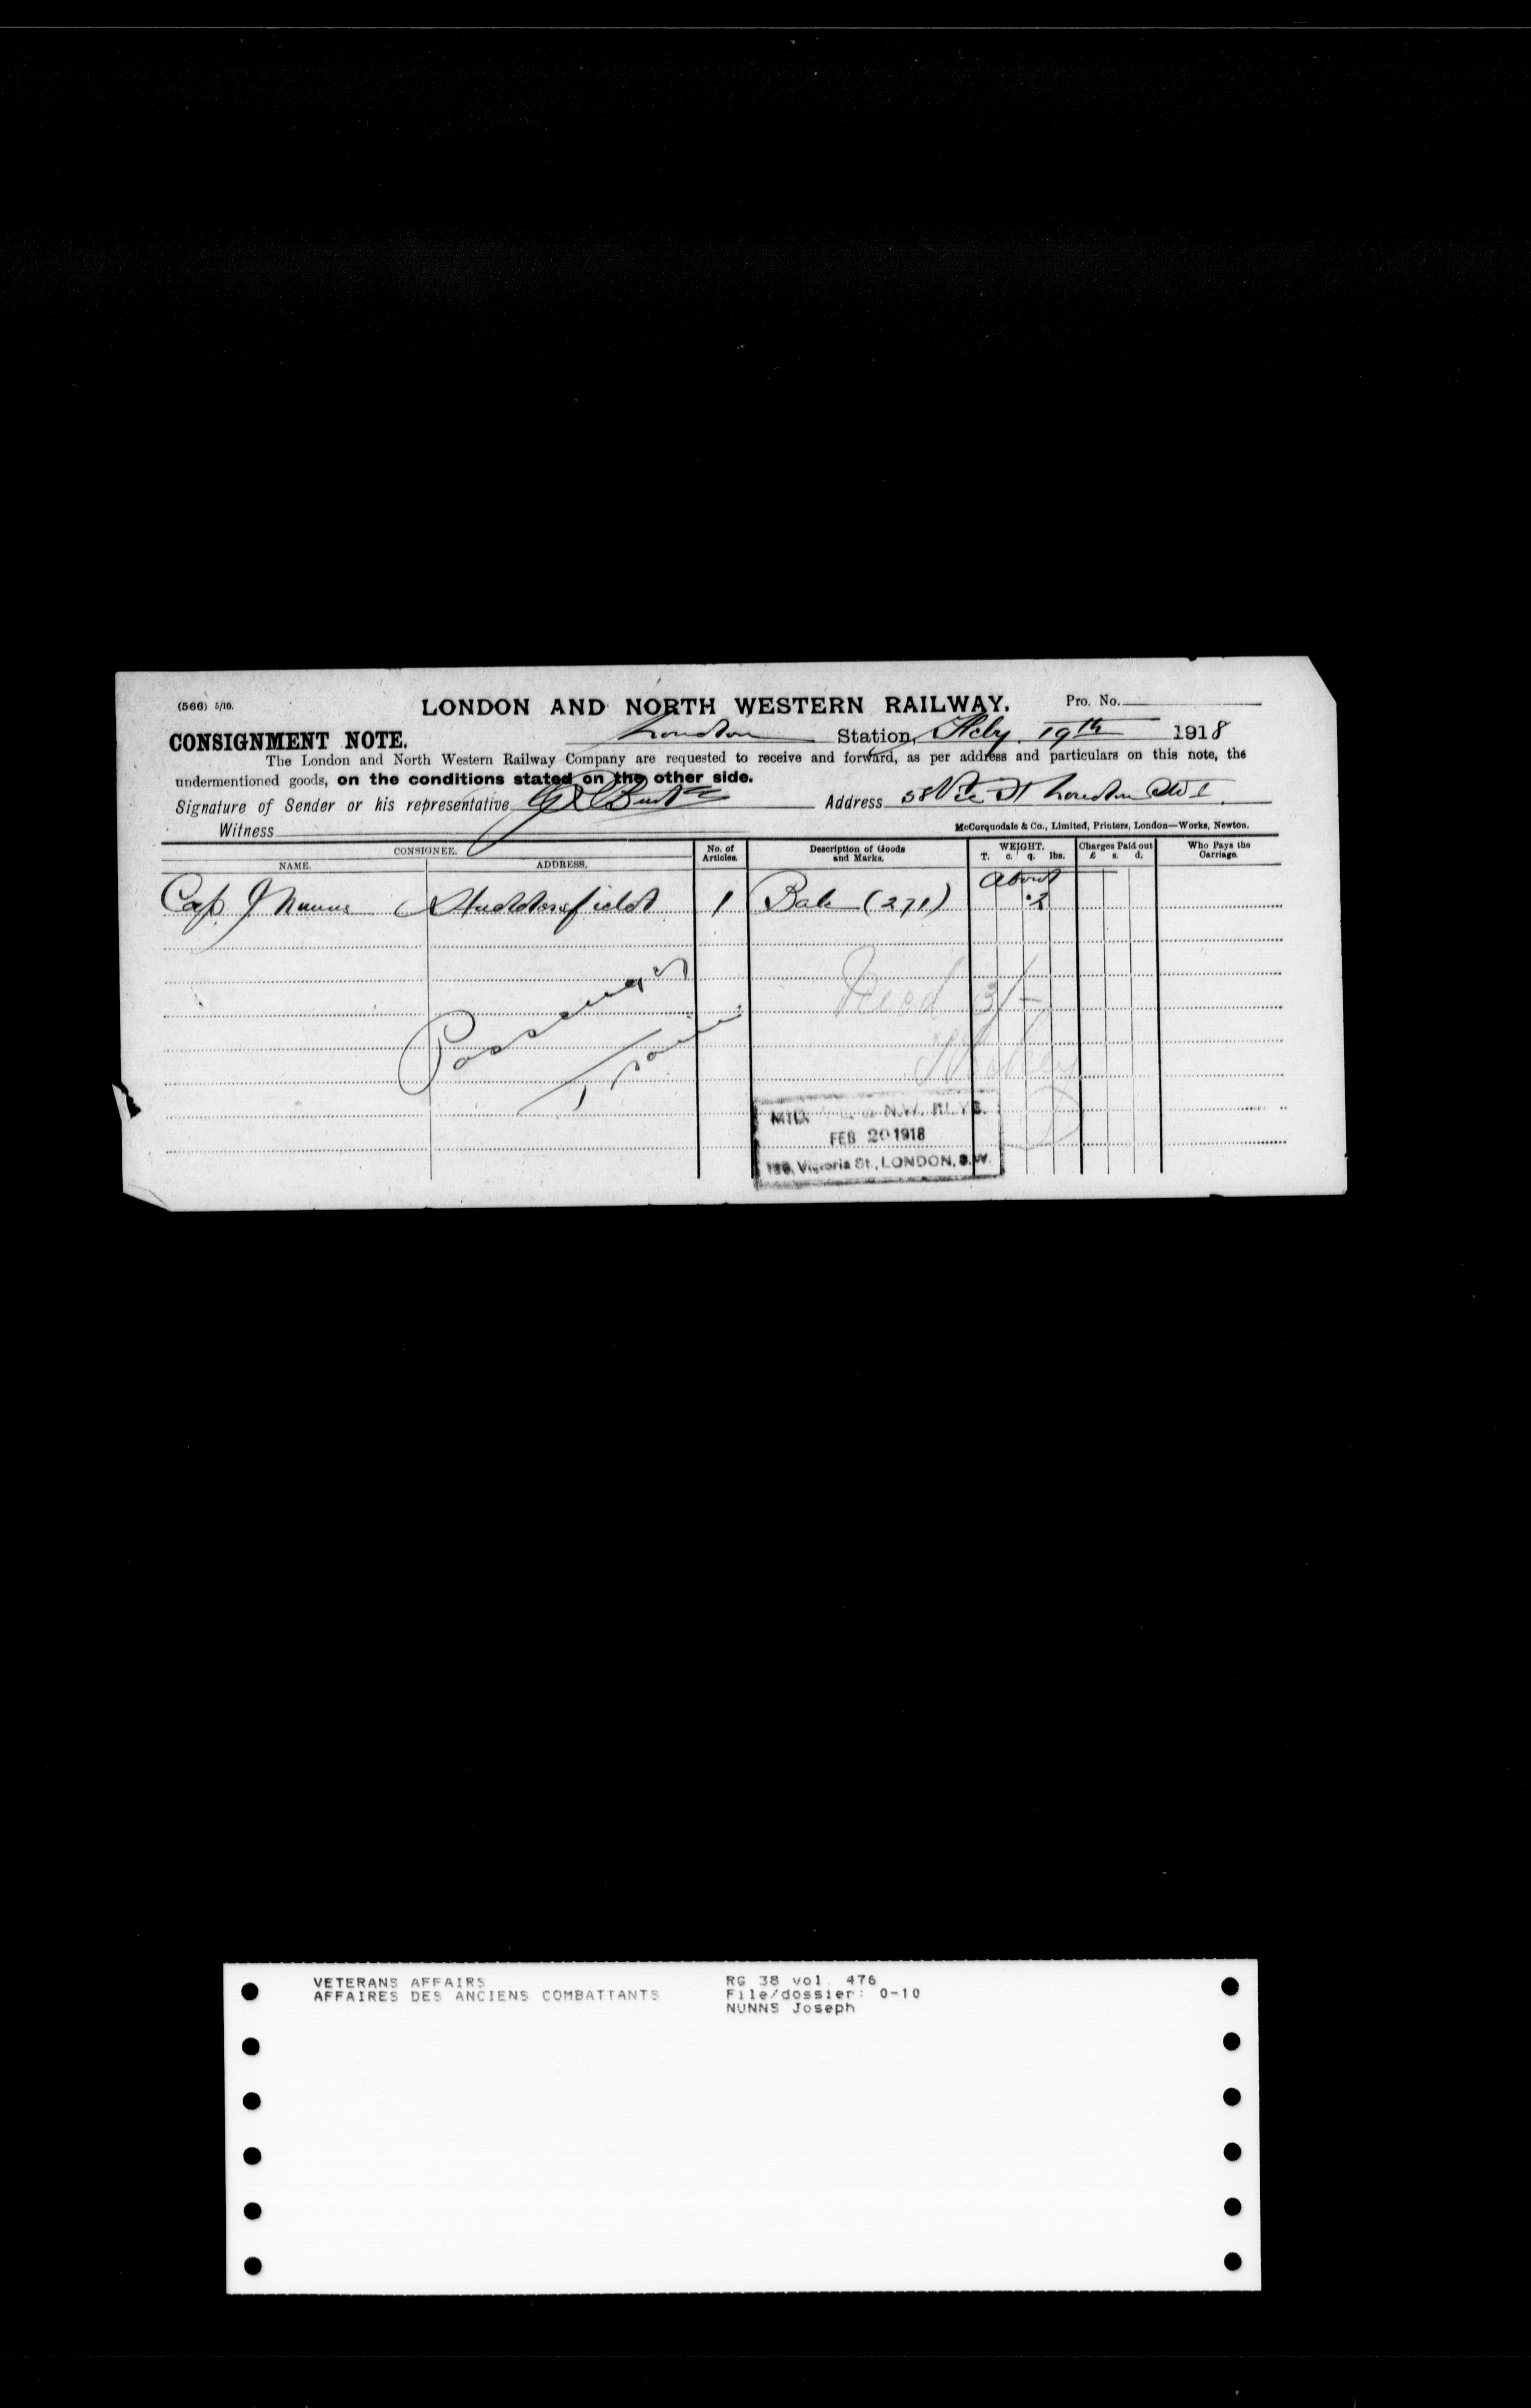 (566) 5/16. LONDON AND NORTH WESTERN RAILWAY. Pro. No.
CONSIGNMENT NOTE. London Station, Feby 19th 1918
The London and North Western Railway Company are requested to receive and forward, as per address and particulars on this note, the
undermentioned goods, on the conditions stated on the other side.
Signature of Sender or his representative Address 58 St London SW1.
Witness
McCorquodale & Co., Limited, Printers, London—Works, Newton.
CONSIGNEE. No. of Articles. Description of Goods and Marks. WEIGHT. Charges Paid out Who Pays the Carriage.
NAME. ADDRESS. T. c. q. lbs. £ s. d.
About
Cap. J Nunns Huddersfield 1 Bale (271) 2
Passenger
Train
3/-
N.W. RLYS.
FEB 20 1918
Victoria St., LONDON, S.W.
VETERANS AFFAIRS
AFFAIRES DES ANCIENS COMBATTANTS
RG 38 vol. 476
File/dossier: 0-10
NUNNS Joseph